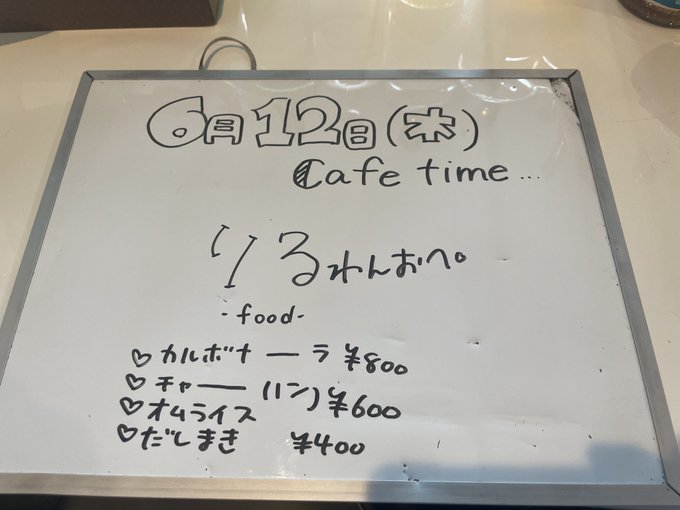 6月12日(木)
Cafe time...
りるわんおぺ。
-food-
♡カルボナーラ ¥800
♡チャーハン
♡オムライス ¥600
♡だしまき ¥400